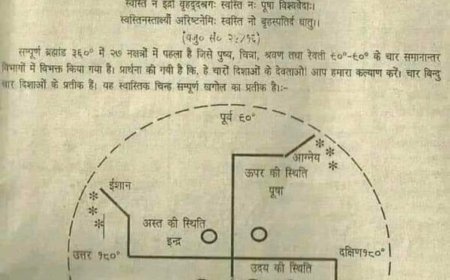 स्वस्ति न इंद्रो वृद्धश्रवाः स्वस्ति नः पूषा विश्ववेदाः।
स्वस्तिनस्तार्क्ष्यो अरिष्टनेमिः स्वस्ति नो बृहस्पतिर्दधातु।।
सम्पूर्ण ब्रह्मांड ३६०° में २७ नक्षत्रों में पहला है जिसे पुष्य, चित्रा, श्रवण तथा रेवती ९०°-९०° के चार समानान्तर
विभागों में विभक्त किया गया है। प्रार्थना की गयी है कि, हे चारों दिशाओं के देवताओं! आप हमारा कल्याण करें। चार बिन्दु
चार दिशाओं के प्रतीक हैं। यह स्वास्तिक चिन्ह सम्पूर्ण खगोल का प्रतीक है।:-
पूर्व ९०°
आग्नेय
ऊपर की स्थिति
पूषा
ईशान
अस्त की स्थिति
इन्द्र
उत्तर १८०°
दक्षिण१८०°
उदय की स्थिति